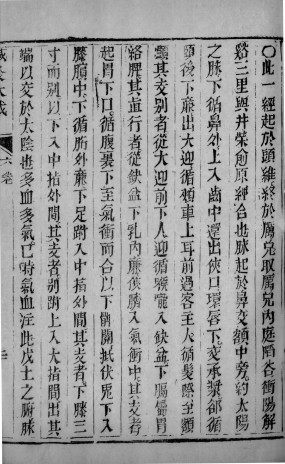 〇此一經起於頭維終於厲兌取厲兌內庭陷谷衝陽解
谿三里與井榮俞原經合也脉起於鼻交頞中旁約太陽
之脉下循鼻外上入齒中還出俠口環唇下交承漿却循
頤後下廉出大迎循頰車上耳前過客主人循髮際至額
顱其支別者從大迎前下人迎循喉嚨入缺盆下膈屬胃
絡脾其直行者從缺盆下乳內廉俠臍入氣衝中其支者
起胃下口循腹裏下至氣衝而合以下髀關抵伏兔下入
膝臏中下循䯒外廉下足跗入中指外間其支者下膝三
寸而別以下入中指外間其支者別跗上入大指間出其
端以交於太陰也多血多氣巳時氣血注此戊土之腑脉
大成
六卷